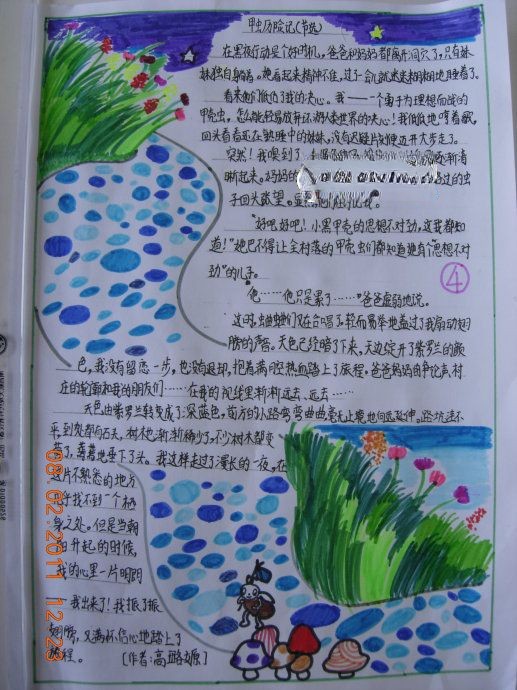 甲虫历险记(节选)
在黑夜行动是个好时机,爸爸和妈妈都离开洞穴了,只有妹
妹独自躺着。她看起来精神不佳,过了一会儿就迷迷糊糊地睡着了。
看来他们低估了我的决心。我——一个勇于为理想而战的
甲壳虫,怎么能轻易放弃环游人类世界的决心!我低低地哼着歌,
回头看看还在熟睡中的妹妹,没有迟疑片刻便迈开大步走了。
突然!我嗅到了 渐清
晰起来。妈妈的 过的虫
子回头张望。
“好吧好吧!小黑甲壳的思想不对劲,这我都知
道!”她巴不得让全村落的甲壳虫们都知道她有个“思想不对
劲”的儿子。
④
“他……他只是累了……”爸爸虚弱地说。
这时,蛐蛐们又在合唱了,轻而易举地盖过了我扇动翅
膀的声音。天色已经暗了下来,天边绽开了紫罗兰的颜
色,我没有留恋一步,也没有退却,抱着满腔热血踏上了旅程。爸爸妈妈的争论声,村
庄的轮廓和我的朋友们……在我的视线里渐渐远去、远去……
天色由紫罗兰转变成了深蓝色,前方的小路弯弯曲曲毫无止境地向远延伸。路坑洼不
平,到处都有石头,树木也渐渐稀少了,不少树木都变
了,蔫蔫地垂下了头。我这样走过了漫长的一夜。在
这片不熟悉的地方
几乎找不到一个栖
身之处。但是当朝
日升起的时候,
我的心里一片明朗
——我出来了!我振了振
翅膀,又满怀信心地踏上了
旅程。 [作者:高璐嫄]
08.02.2011 12:23